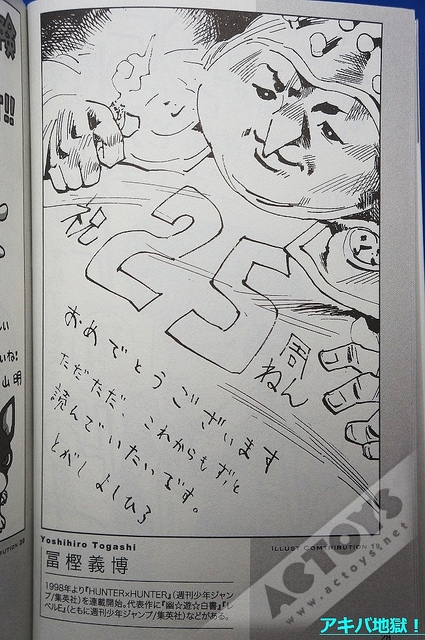 祝
25
周
ねん
おめでとうございます
ただただ、これからもずっと
読んでいたいです。
とがしよしひろ
いね!
山明
Yoshihiro Togashi
冨樫義博
ILLUST CONTRIBUTION
1998年より『HUNTER×HUNTER』(週刊少年ジャン
プ/集英社)を連載開始。代表作に『幽☆遊☆白書』『レ
ベルE』(ともに週刊少年ジャンプ/集英社)などがある。
ACTOYS
www.actoys.net
アキバ地獄!